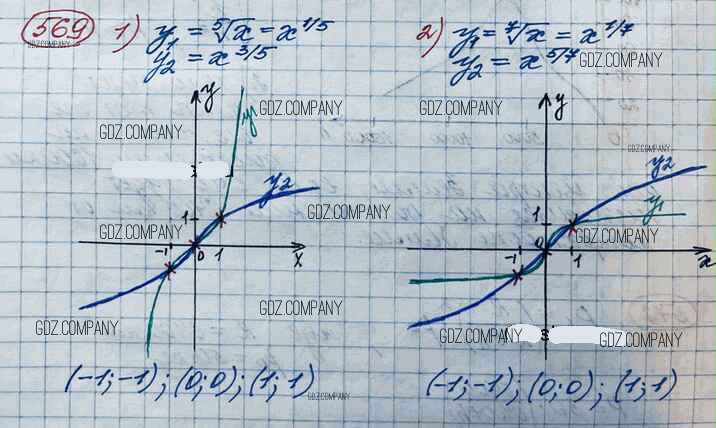 569 1) y₁ = ⁵√x = x^1/5
y₂ = x^3/5
2) y₁ = ⁷√x = x^1/7
y₂ = x^5/7
GDZ.COMPANY
GDZ.COMPANY
y
y₁
GDZ.COMPANY
GDZ.COMPANY
y₂
1
GDZ.COMPANY
GDZ.COMPANY
-1 0 1 x
GDZ.COMPANY
GDZ.COMPANY
(-1;-1); (0;0); (1;1)
GDZ.COMPANY
GDZ.COMPANY
y
GDZ.COMPANY
y₂
y₁
1
GDZ.COMPANY
-1 0 1 x
GDZ.COMPANY
GDZ.COMPANY
(-1;-1); (0;0); (1;1)